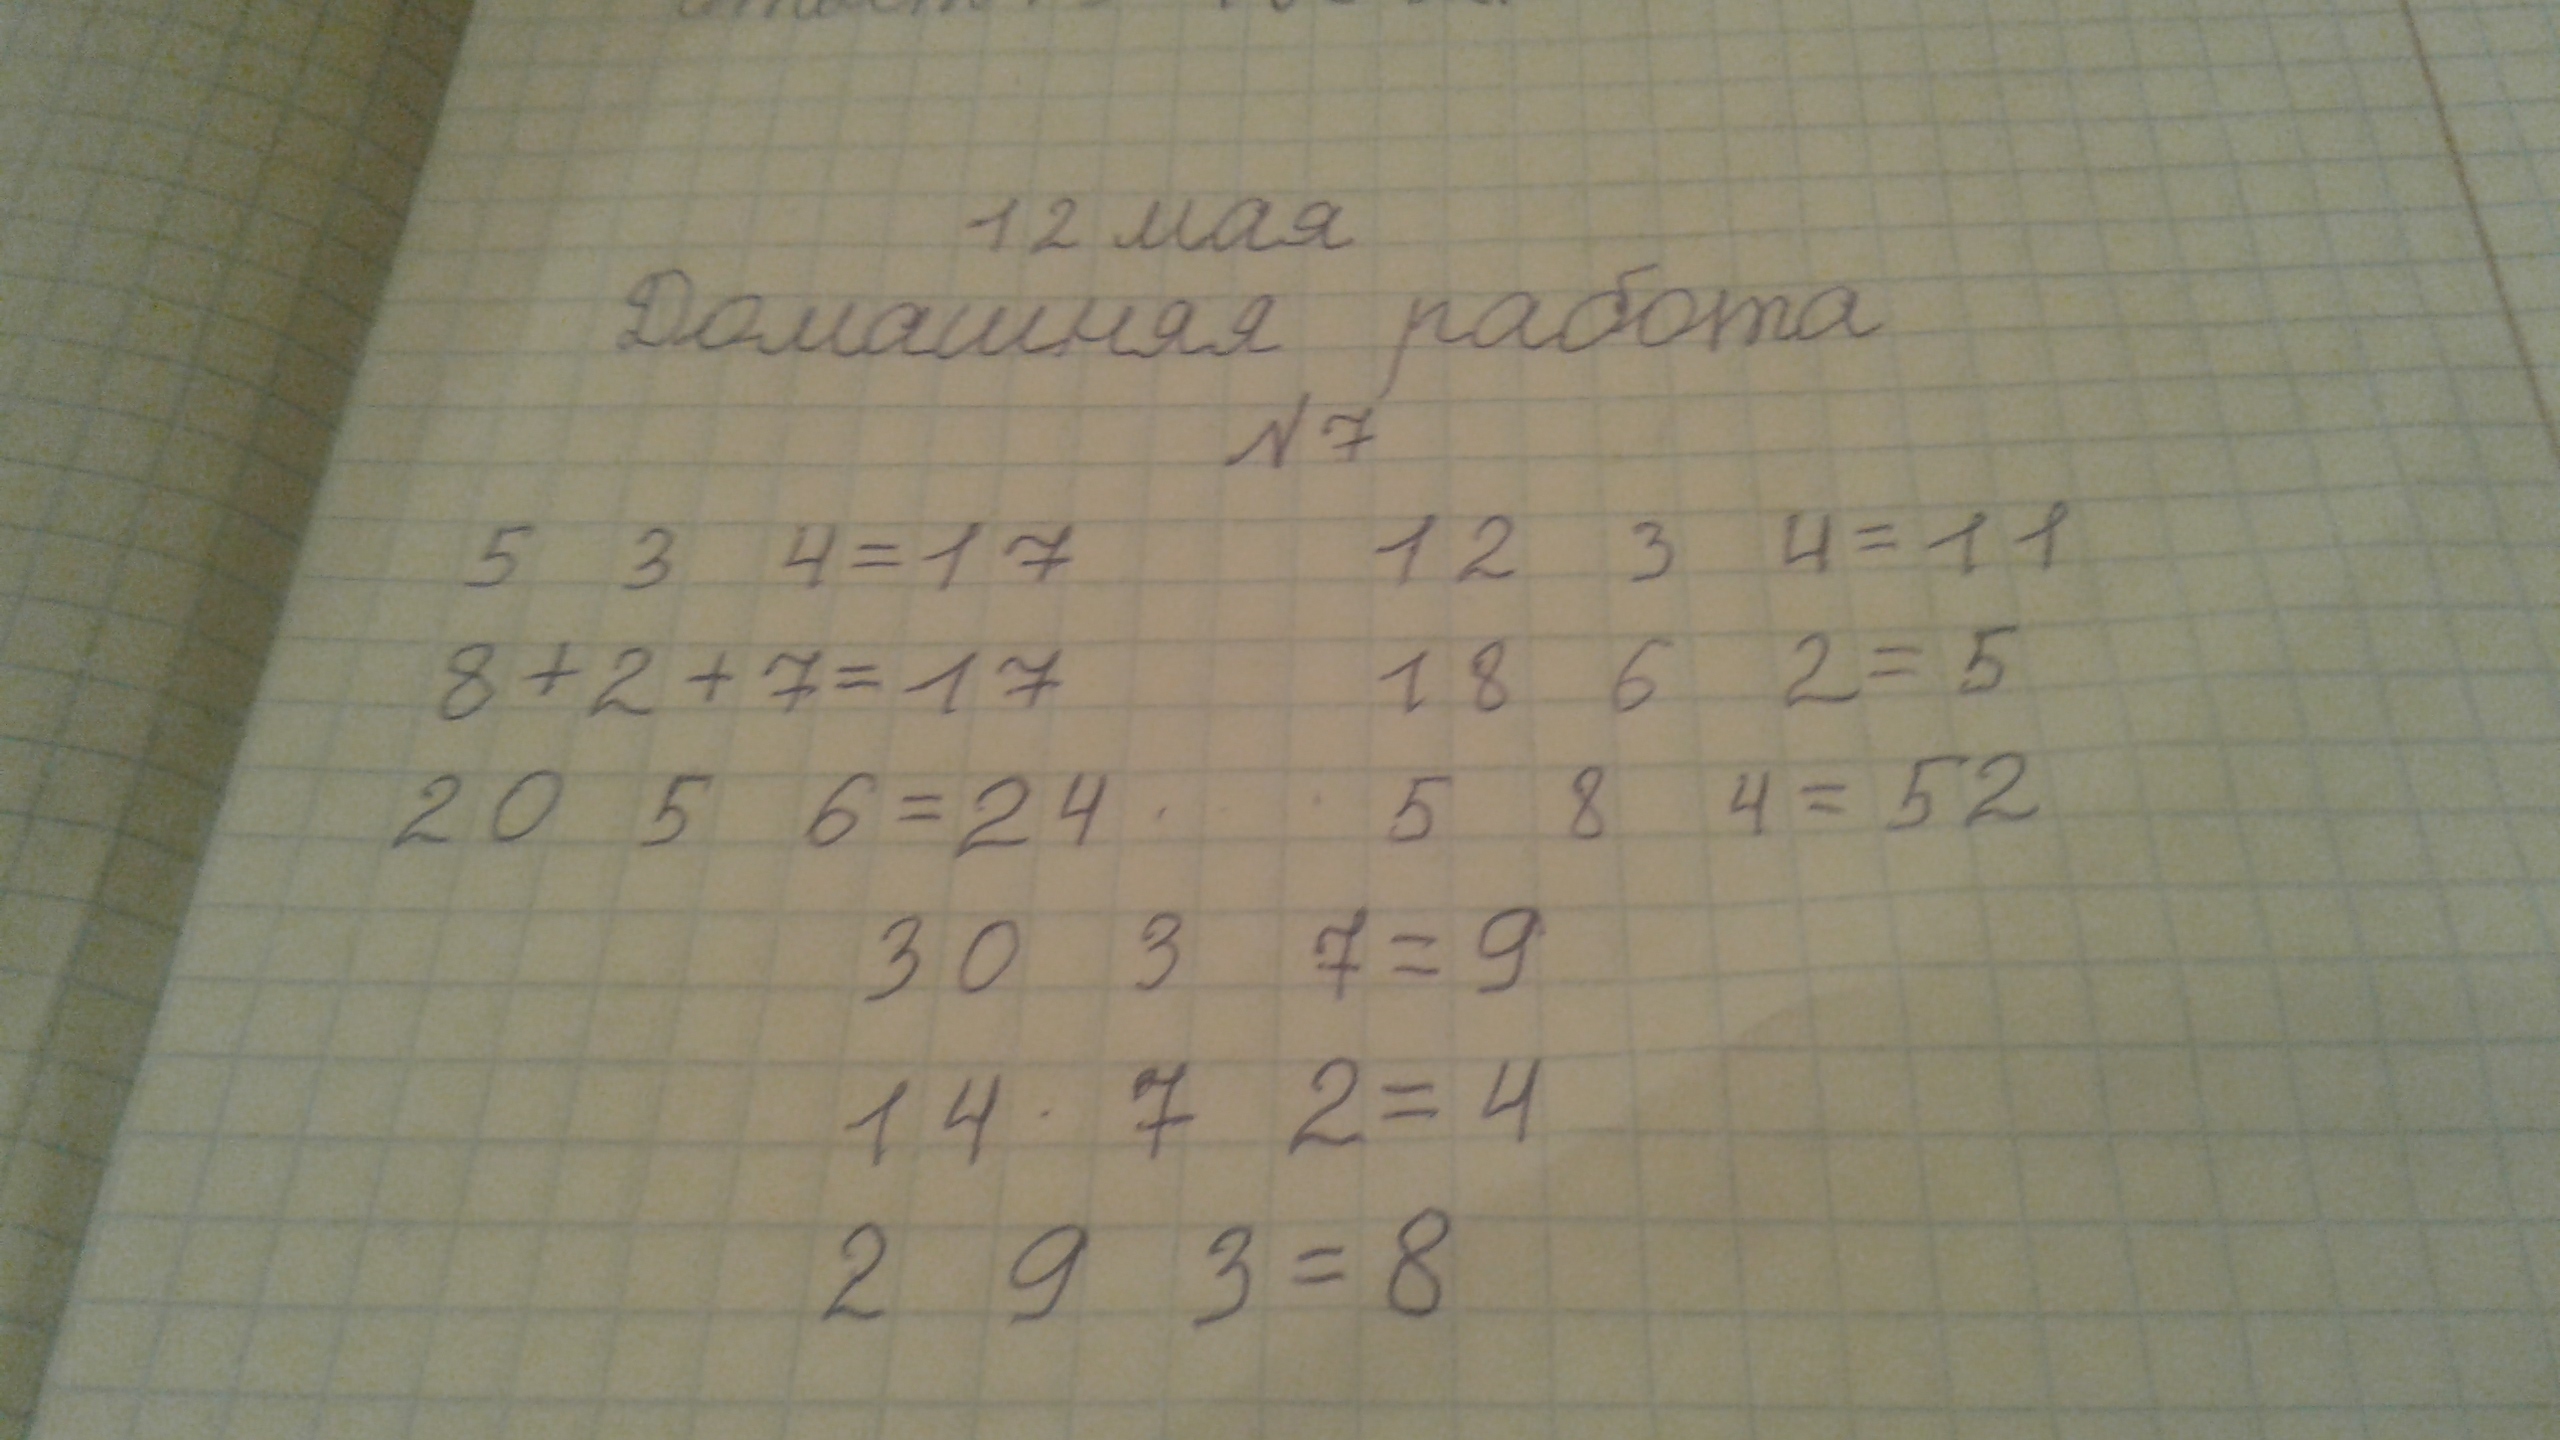 12 мая
Домашняя работа
N7
5 3 4=17 12 3 4=11
8+2+7=17 18 6 2=5
20 5 6=24 5 8 4=52
30 3 7=9
14 7 2=4
2 9 3=8